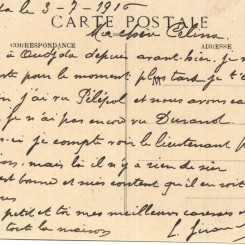 le 3-7-1916
CARTE POSTALE
Ma chère Célina
CORRESPONDANCE ADRESSE
à Oudjda depuis avant-hier, je
pour le moment plus tard je t'
j'ai vu Pélépol et nous avons
je n'ai pas encore vu Durand
ci je compte voir le lieutenant
mais là il n'y a rien de sûr
est bonne et suis content qu'il en soit
petit et toi mes meilleures caresses et
toute la maison L. Girau